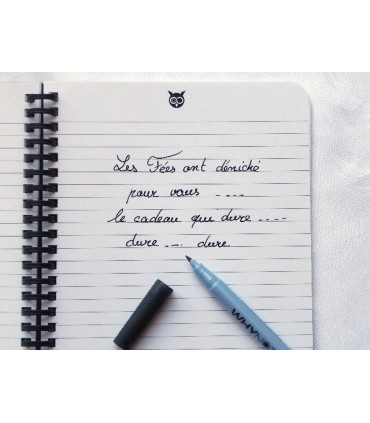 Les Fées ont déniché
pour vous ----
le cadeau qui dure ----
dure --- dure
WHYNO